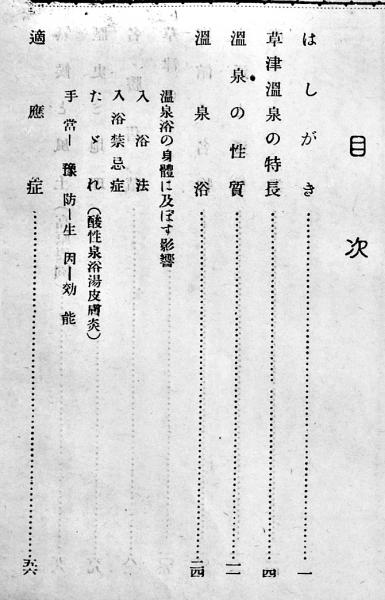 目次
はしがき……一
草津溫泉の特長……四
溫泉の性質……一一
溫泉浴……二四
溫泉浴の身體に及ぼす影響
入浴法
入浴禁忌症
たゞれ(酸性泉浴湯皮膚炎)
手當―豫防―生因―効能
適應症……五六